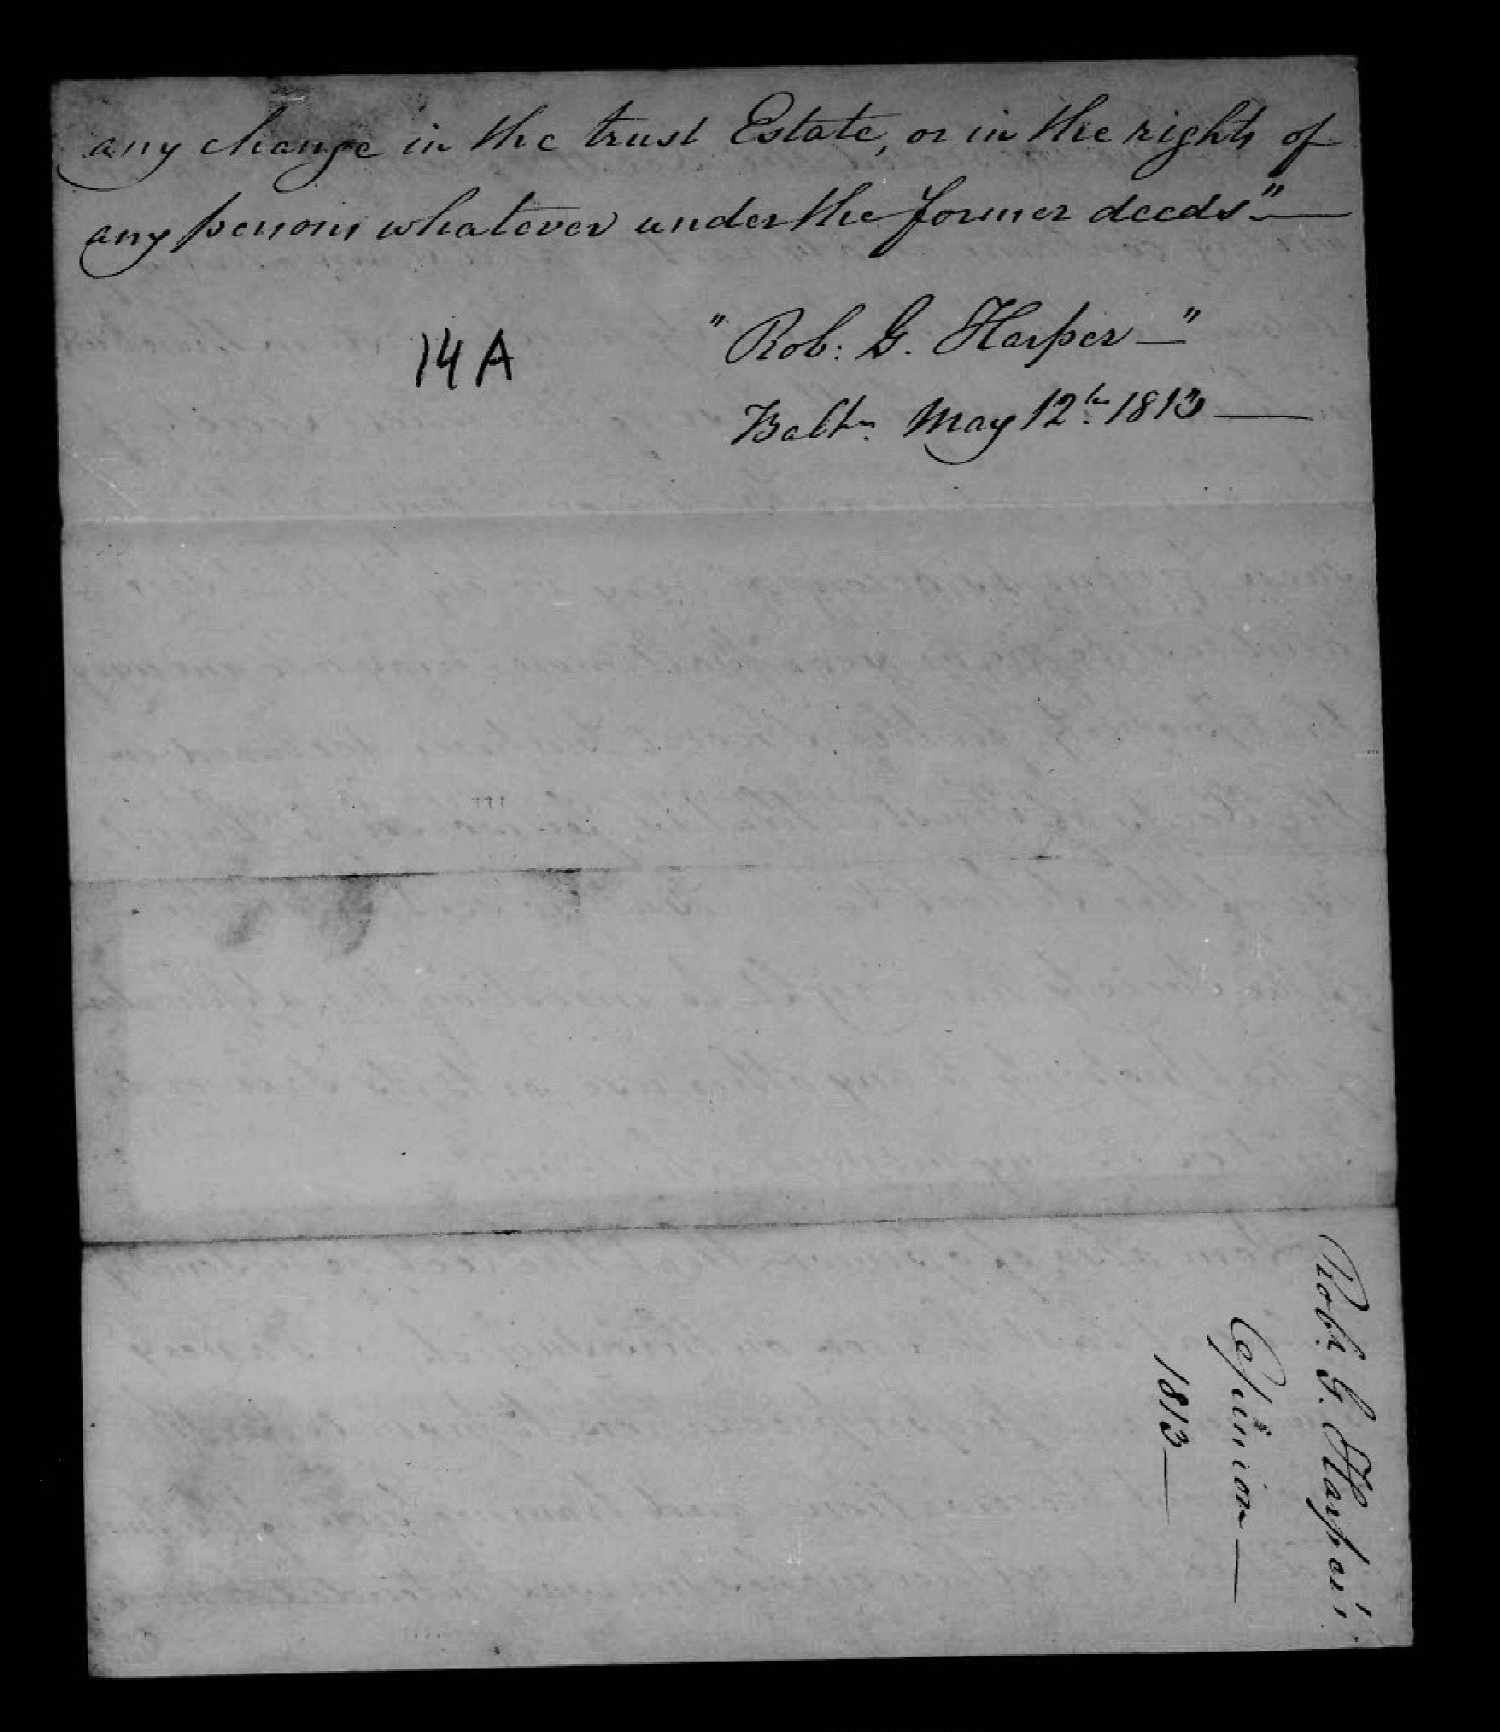 any change in the trust Estate, or in the rights of
any persons whatever under the former deeds"—
14 A
"Rob: G. Harper—"
Balt. May 12th 1813—
Rob. G. Harper's
Opinion—
1813—